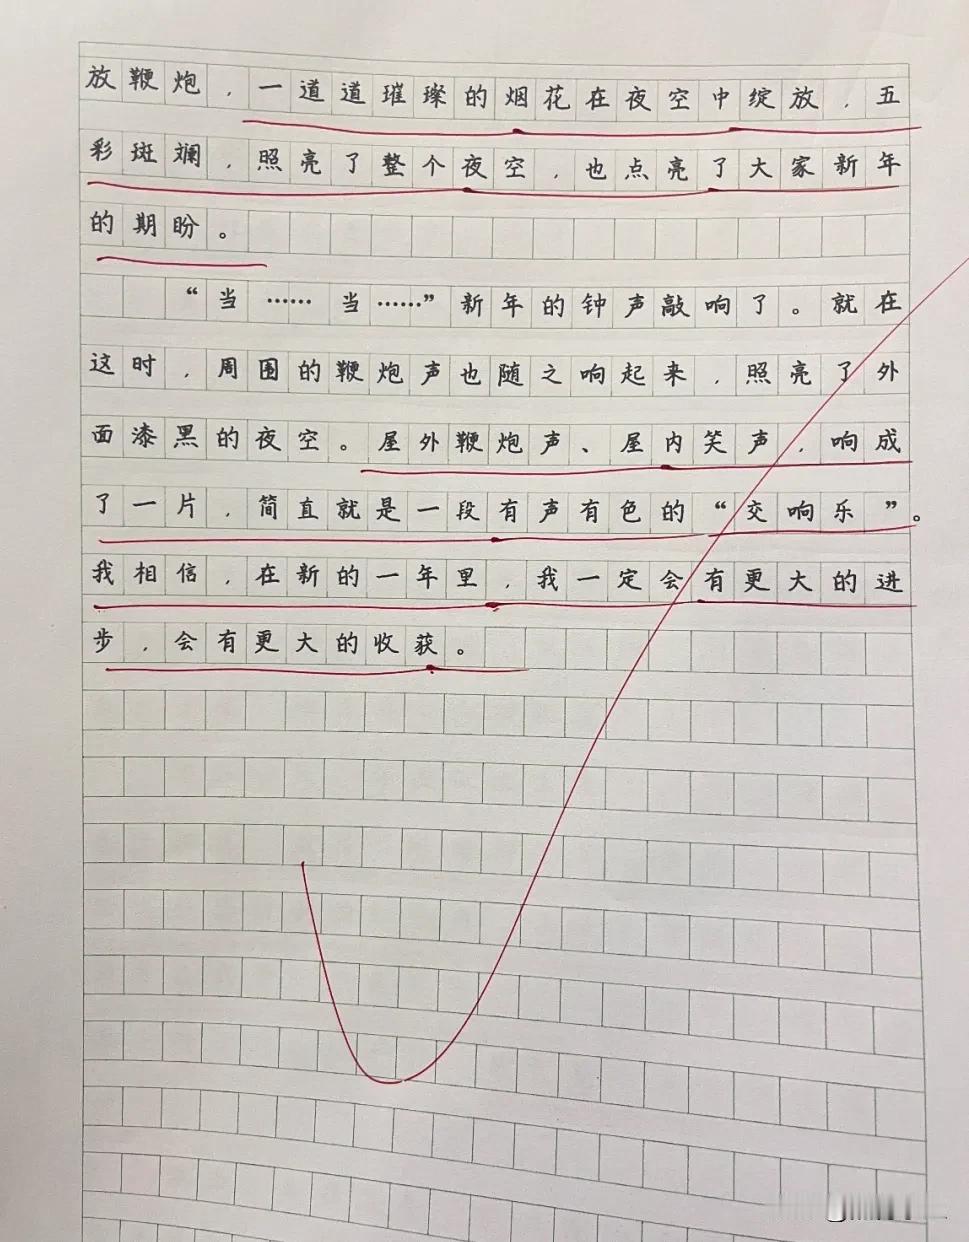 放鞭炮，一道道璀璨的烟花在夜空中绽放，五
彩斑斓，照亮了整个夜空，也点亮了大家新年
的期盼。
“当……当……”新年的钟声敲响了。就在
这时，周围的鞭炮声也随之响起来，照亮了外
面漆黑的夜空。屋外鞭炮声、屋内笑声，响成
了一片，简直就是一段有声有色的“交响乐”。
我相信，在新的一年里，我一定会有更大的进
步，会有更大的收获。